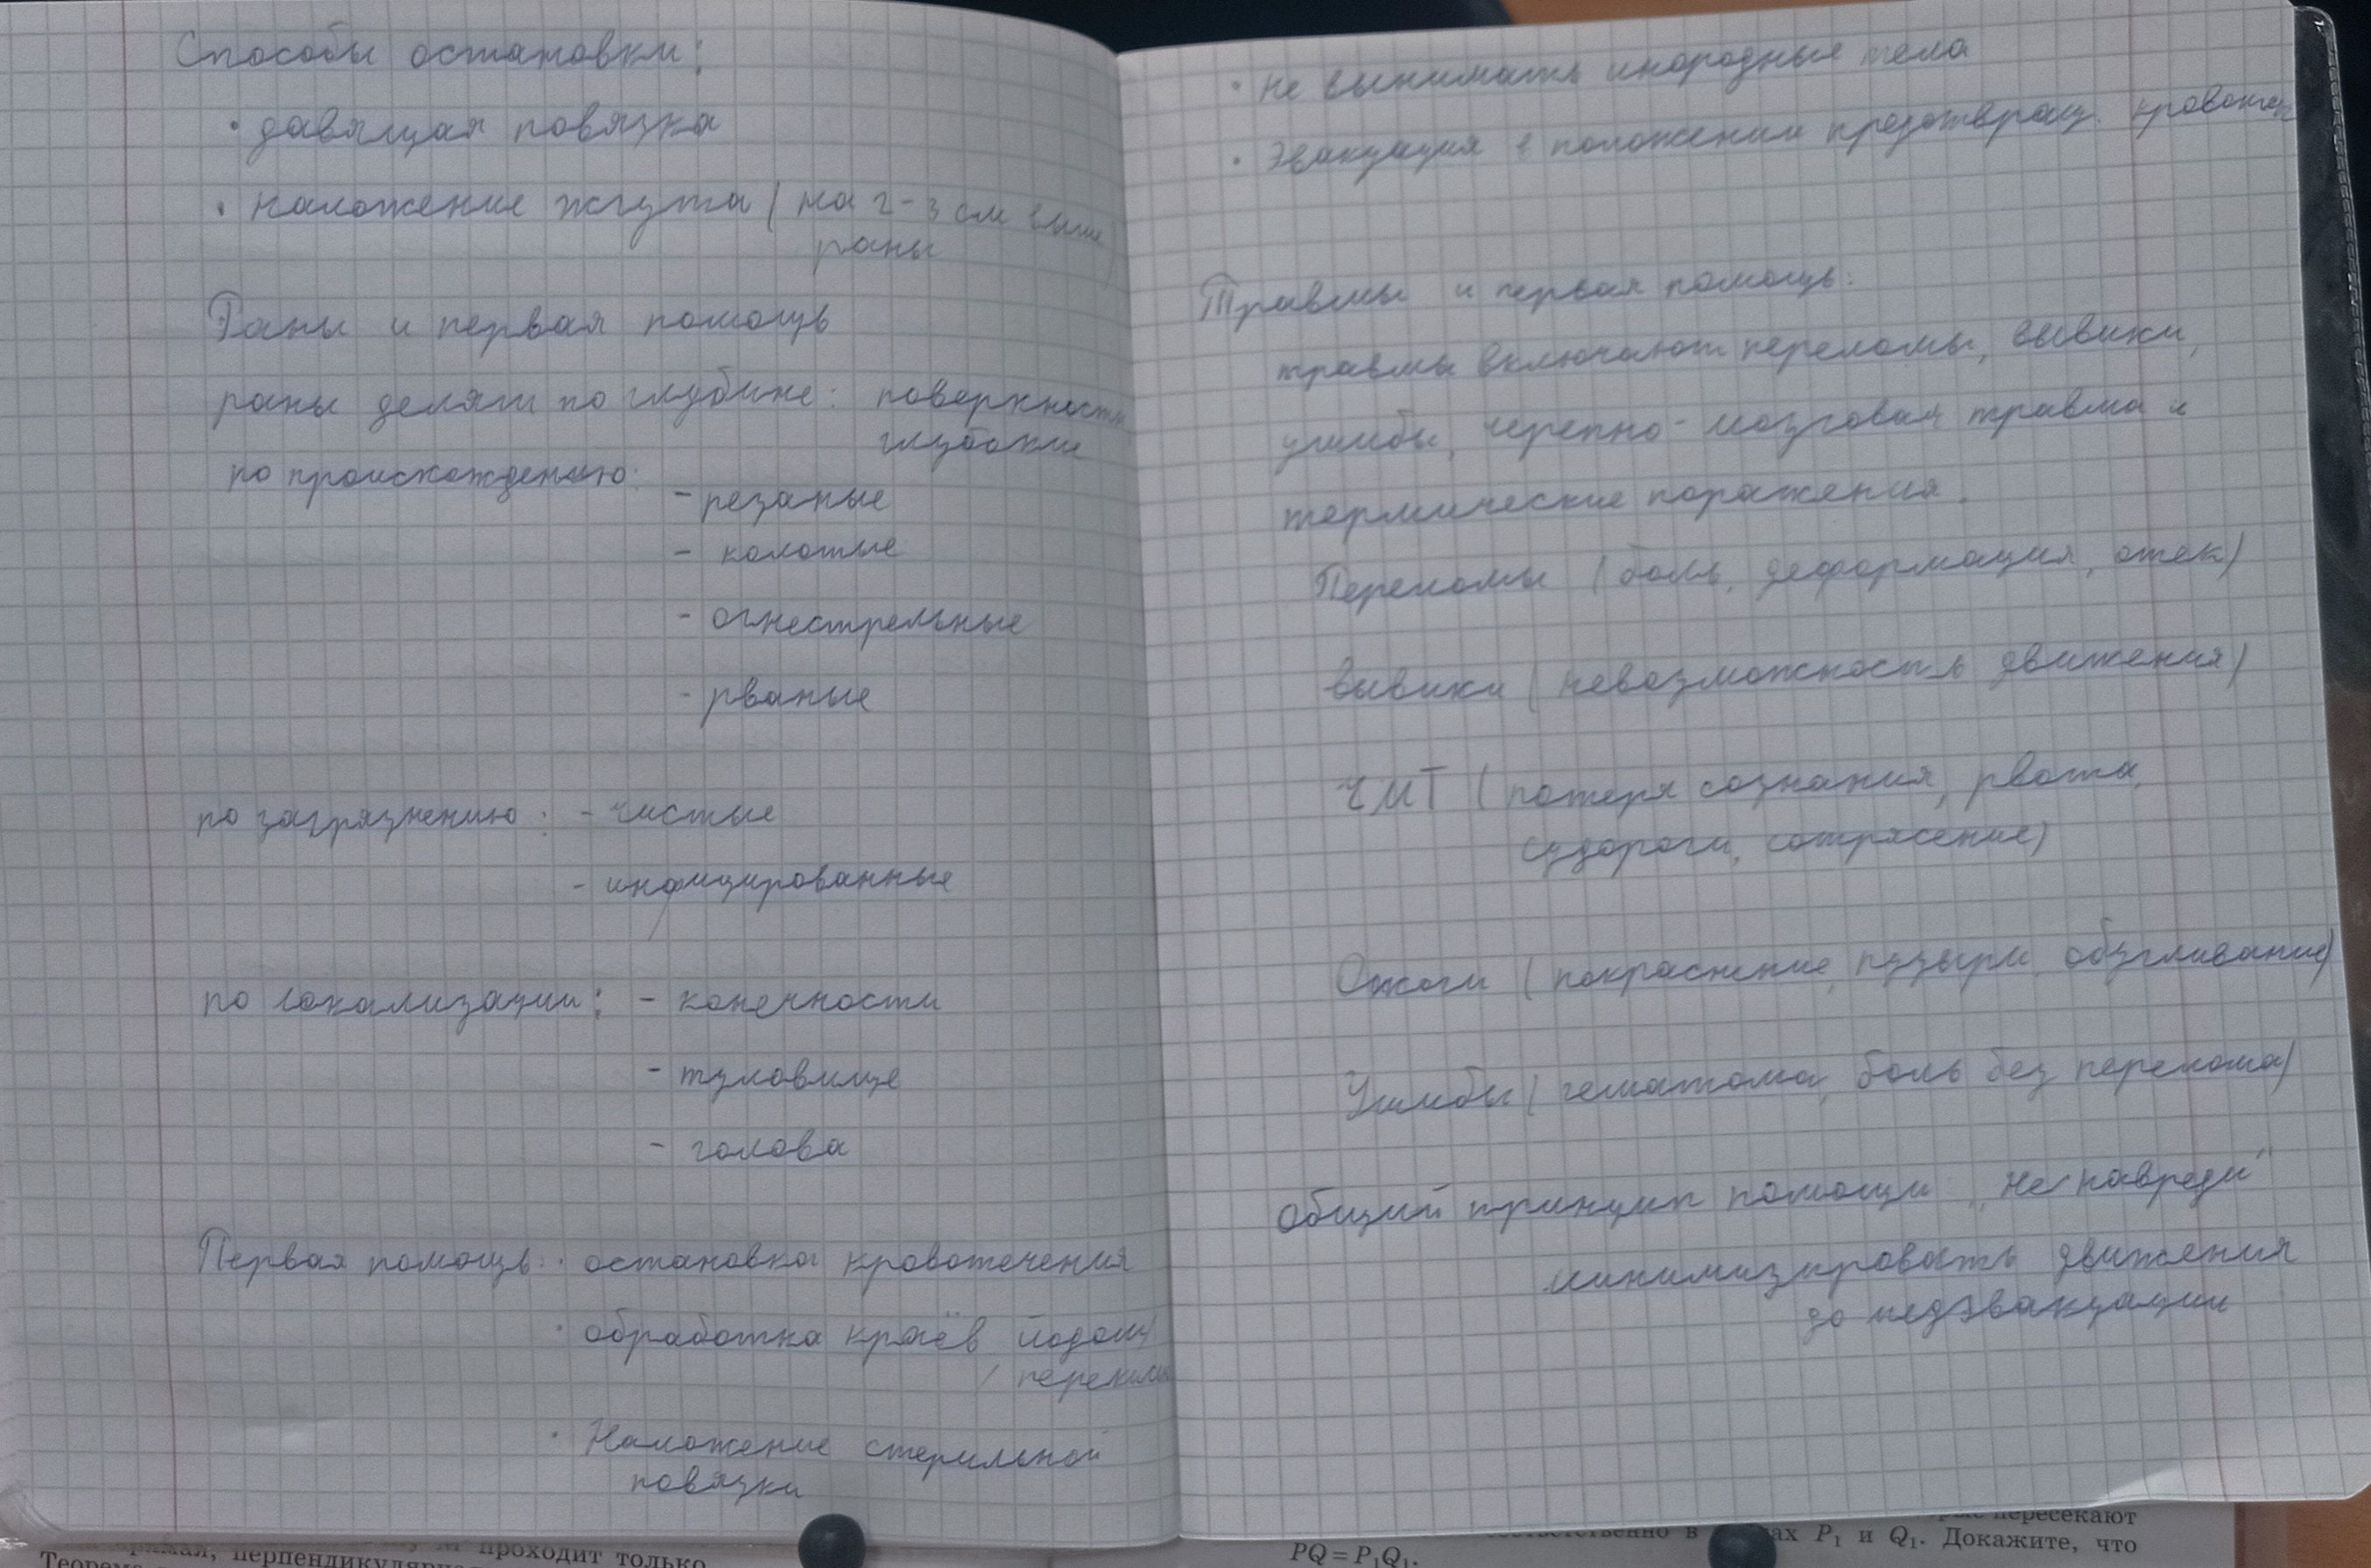 Способы остановки:
• давящая повязка
• наложение жгута (на 2-3 см выше
раны)
Раны и первая помощь
раны делят по глубине: поверхностн
глубокие
по происхождению:
- резаные
- колотые
- огнестрельные
- рваные
по загрязнению: - чистые
- инфицированные
по локализации: - конечности
- туловище
- голова
Первая помощь: • остановка кровотечения
• обработка краёв йодом/
/ перекись
• Наложение стерильной
повязки
• не вынимать инородные тела
• Эвакуация в положении предотвращ. кровотеч
Травмы и первая помощь:
травмы включают переломы, вывихи,
ушибы, черепно-мозговая травма и
термические поражения.
Переломы (боль, деформация, отек)
вывихи (невозможность движения)
ЧМТ (потеря сознания, рвота,
судороги, сотрясение)
Ожоги (покраснение, пузыри, обугливание)
Ушибы (гематома, боль без перелома)
Общий принцип помощи „не навреди"
минимизировать движения
до медэвакуации
проходит только
перпендикулярная
пересекают
в
P₁ и Q₁. Докажите, что
PQ = P₁Q₁.